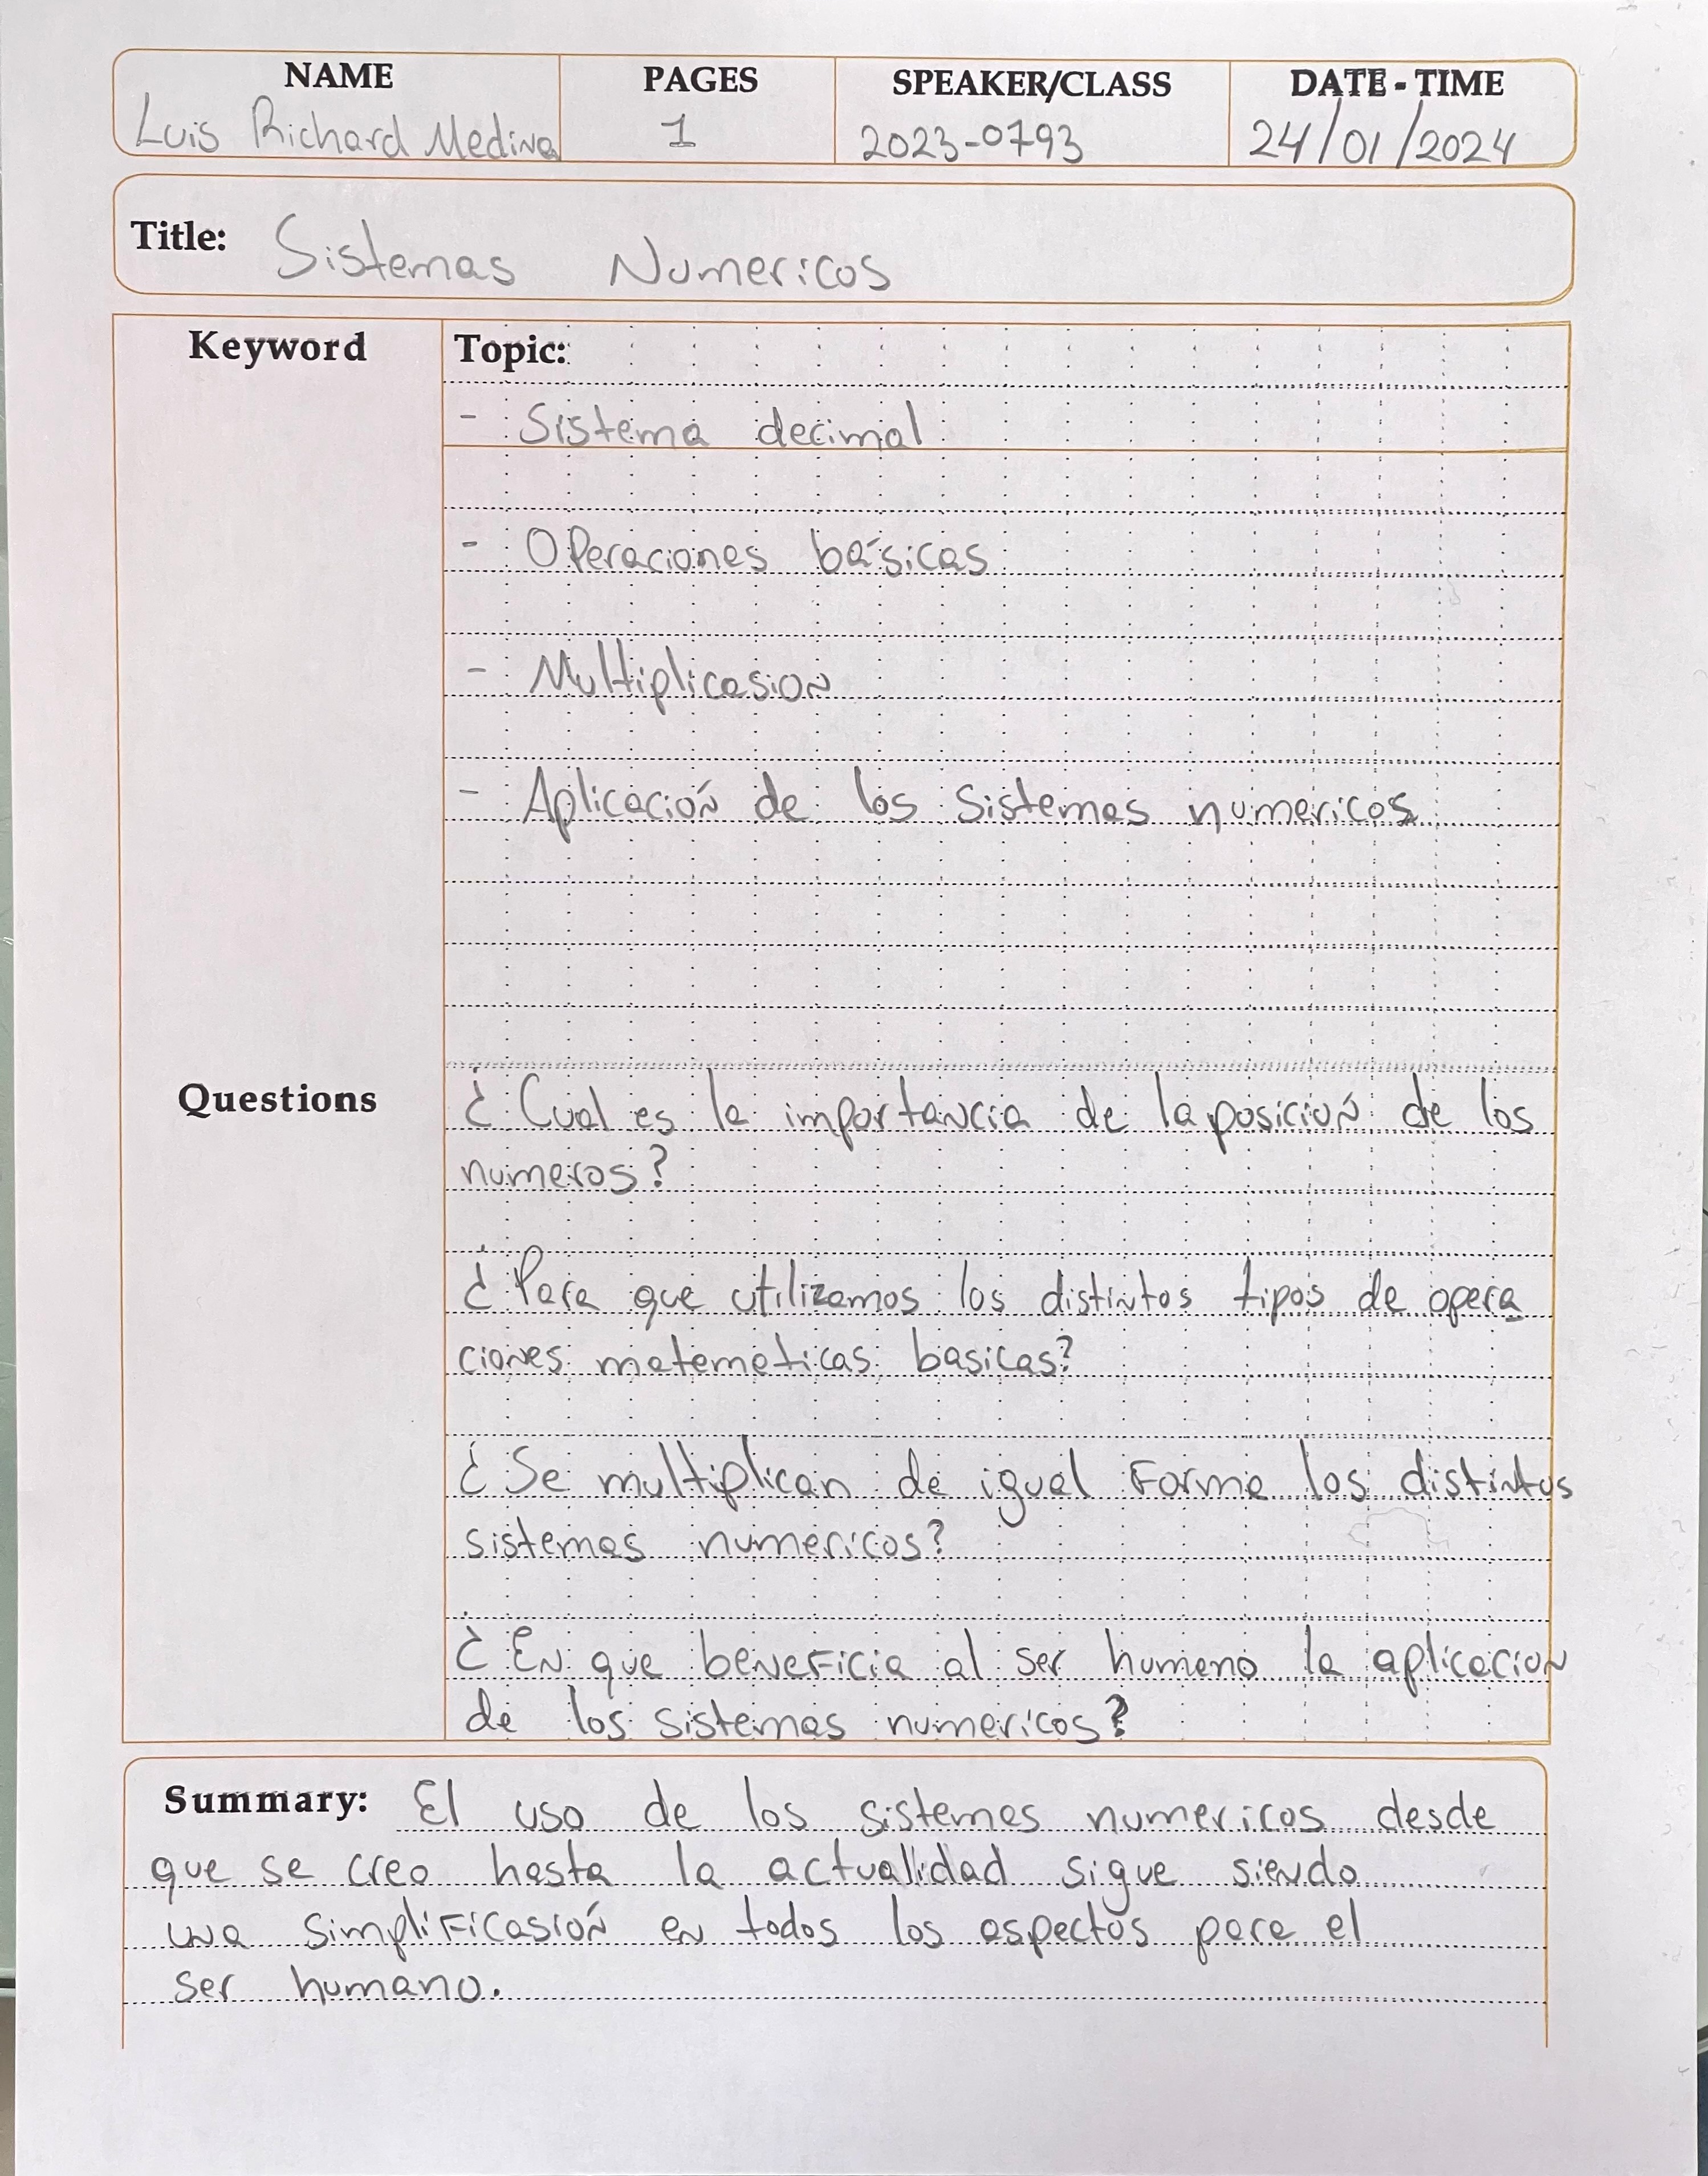 NAME PAGES SPEAKER/CLASS DATE - TIME
Luis Richard Medina 1 2023-0793 24/01/2024
Title: Sistemas Numericos
Keyword Topic:
- Sistema decimal
- Operaciones básicas
- Multiplicasion
- Aplicación de los sistemas numericos
Questions ¿Cual es la importancia de la posición de los
numeros?
¿Para que utilizamos los distintos tipos de opera
ciones matematicas basicas?
¿Se multiplican de igual Forma los distintos
sistemas numericos?
¿En que beneficia al ser humano la aplicacion
de los sistemas numericos?
Summary: El uso de los sistemas numericos desde
que se creo hasta la actualidad sigue siendo
una simplificasión en todos los aspectos para el
ser humano.